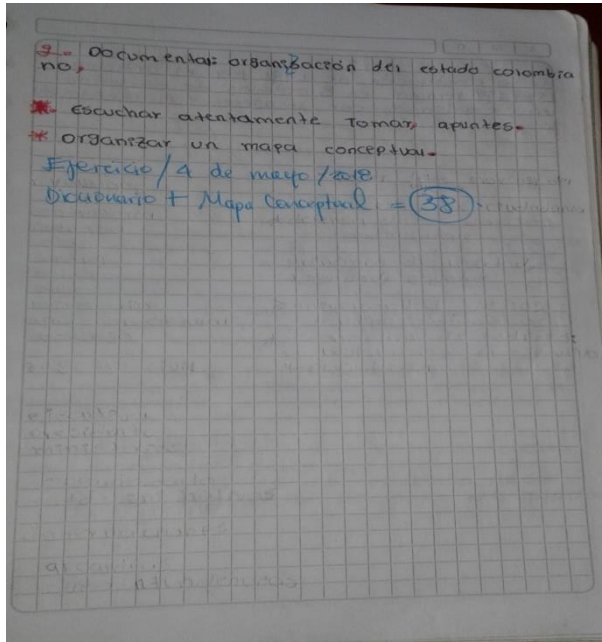 9. Documental: organización del estado colombia
no,
* Escuchar atentamente Tomar apuntes.
* organizar un mapa conceptual.
Ejercicio / 4 de mayo / 2018
Diccionario + Mapa Conceptual = 38